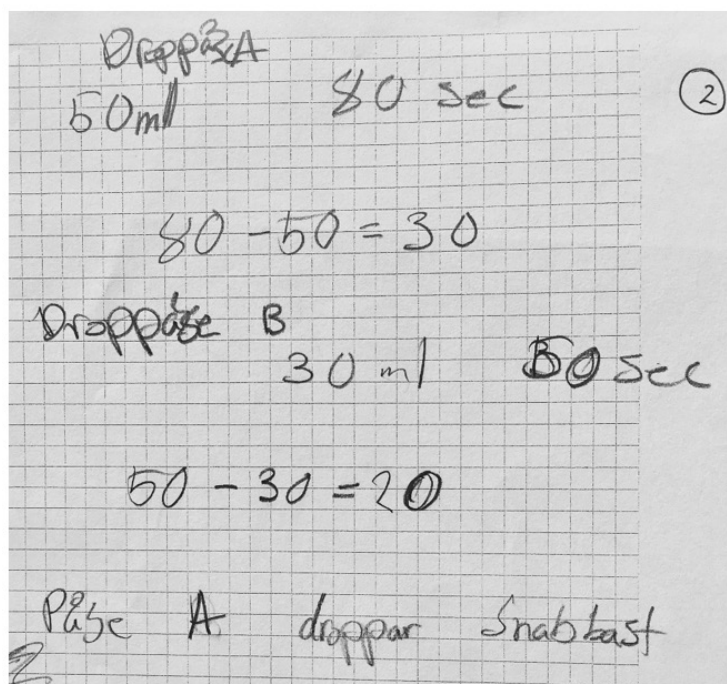 Droppåse A
50ml 80 sec
2
80 - 50 = 30
Droppåse B
30 ml 50 sec
50 - 30 = 20
Påse A droppar snabbast
2